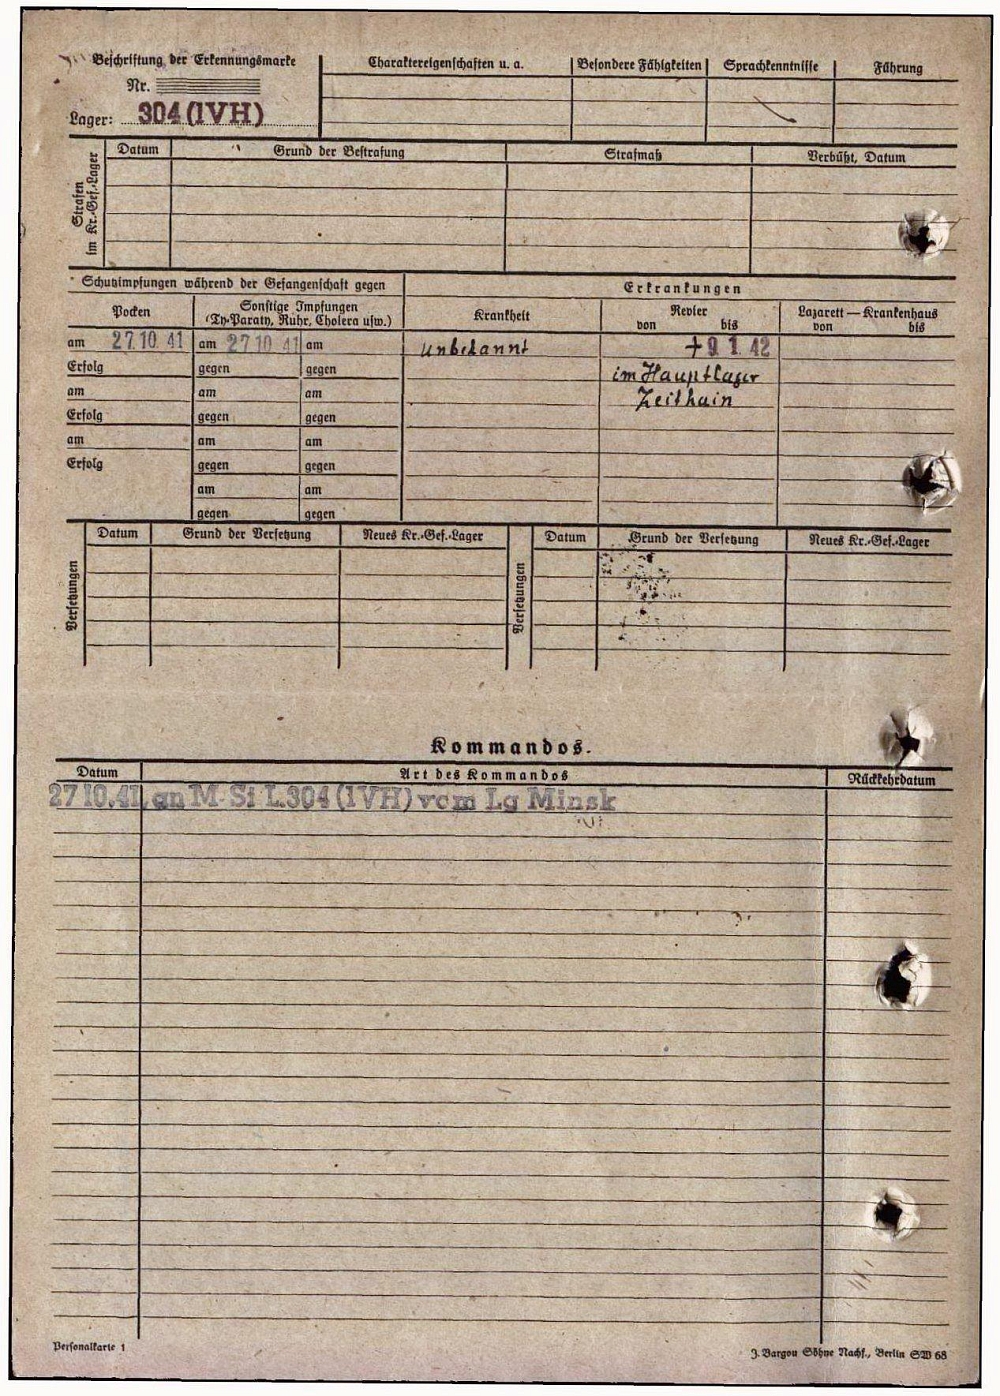 Beschriftung der Erkennungsmarke
Nr.
Lager: 304 (IVH)
Charaktereigenschaften u. a.
Besondere Fähigkeiten
Sprachkenntnisse
Führung
Strafen im Kr.-Gef.-Lager
Datum
Grund der Bestrafung
Strafmaß
Verbüßt, Datum
Schutzimpfungen während der Gefangenschaft gegen
Erkrankungen
Pocken
Sonstige Impfungen
(Ty-Paraty, Ruhr, Cholera usw.)
Krankheit
Revier
von bis
Lazarett — Krankenhaus
von bis
am 27.10.41 am 27 10 41 am
unbekannt
+ 9 1. 42
Erfolg gegen gegen
im Hauptlager
am am am
Zeithain
Erfolg gegen gegen
am am am
Erfolg gegen gegen
am am
gegen gegen
Versetzungen
Datum
Grund der Versetzung
Neues Kr.-Gef.-Lager
Versetzungen
Datum
Grund der Versetzung
Neues Kr.-Gef.-Lager
Kommandos.
Datum
Art des Kommandos
Rückkehrdatum
27 10.41. an M-St L.304 (IVH) vom Lg Minsk
Personalkarte 1
J. Bargou Söhne Nachf., Berlin SW 68